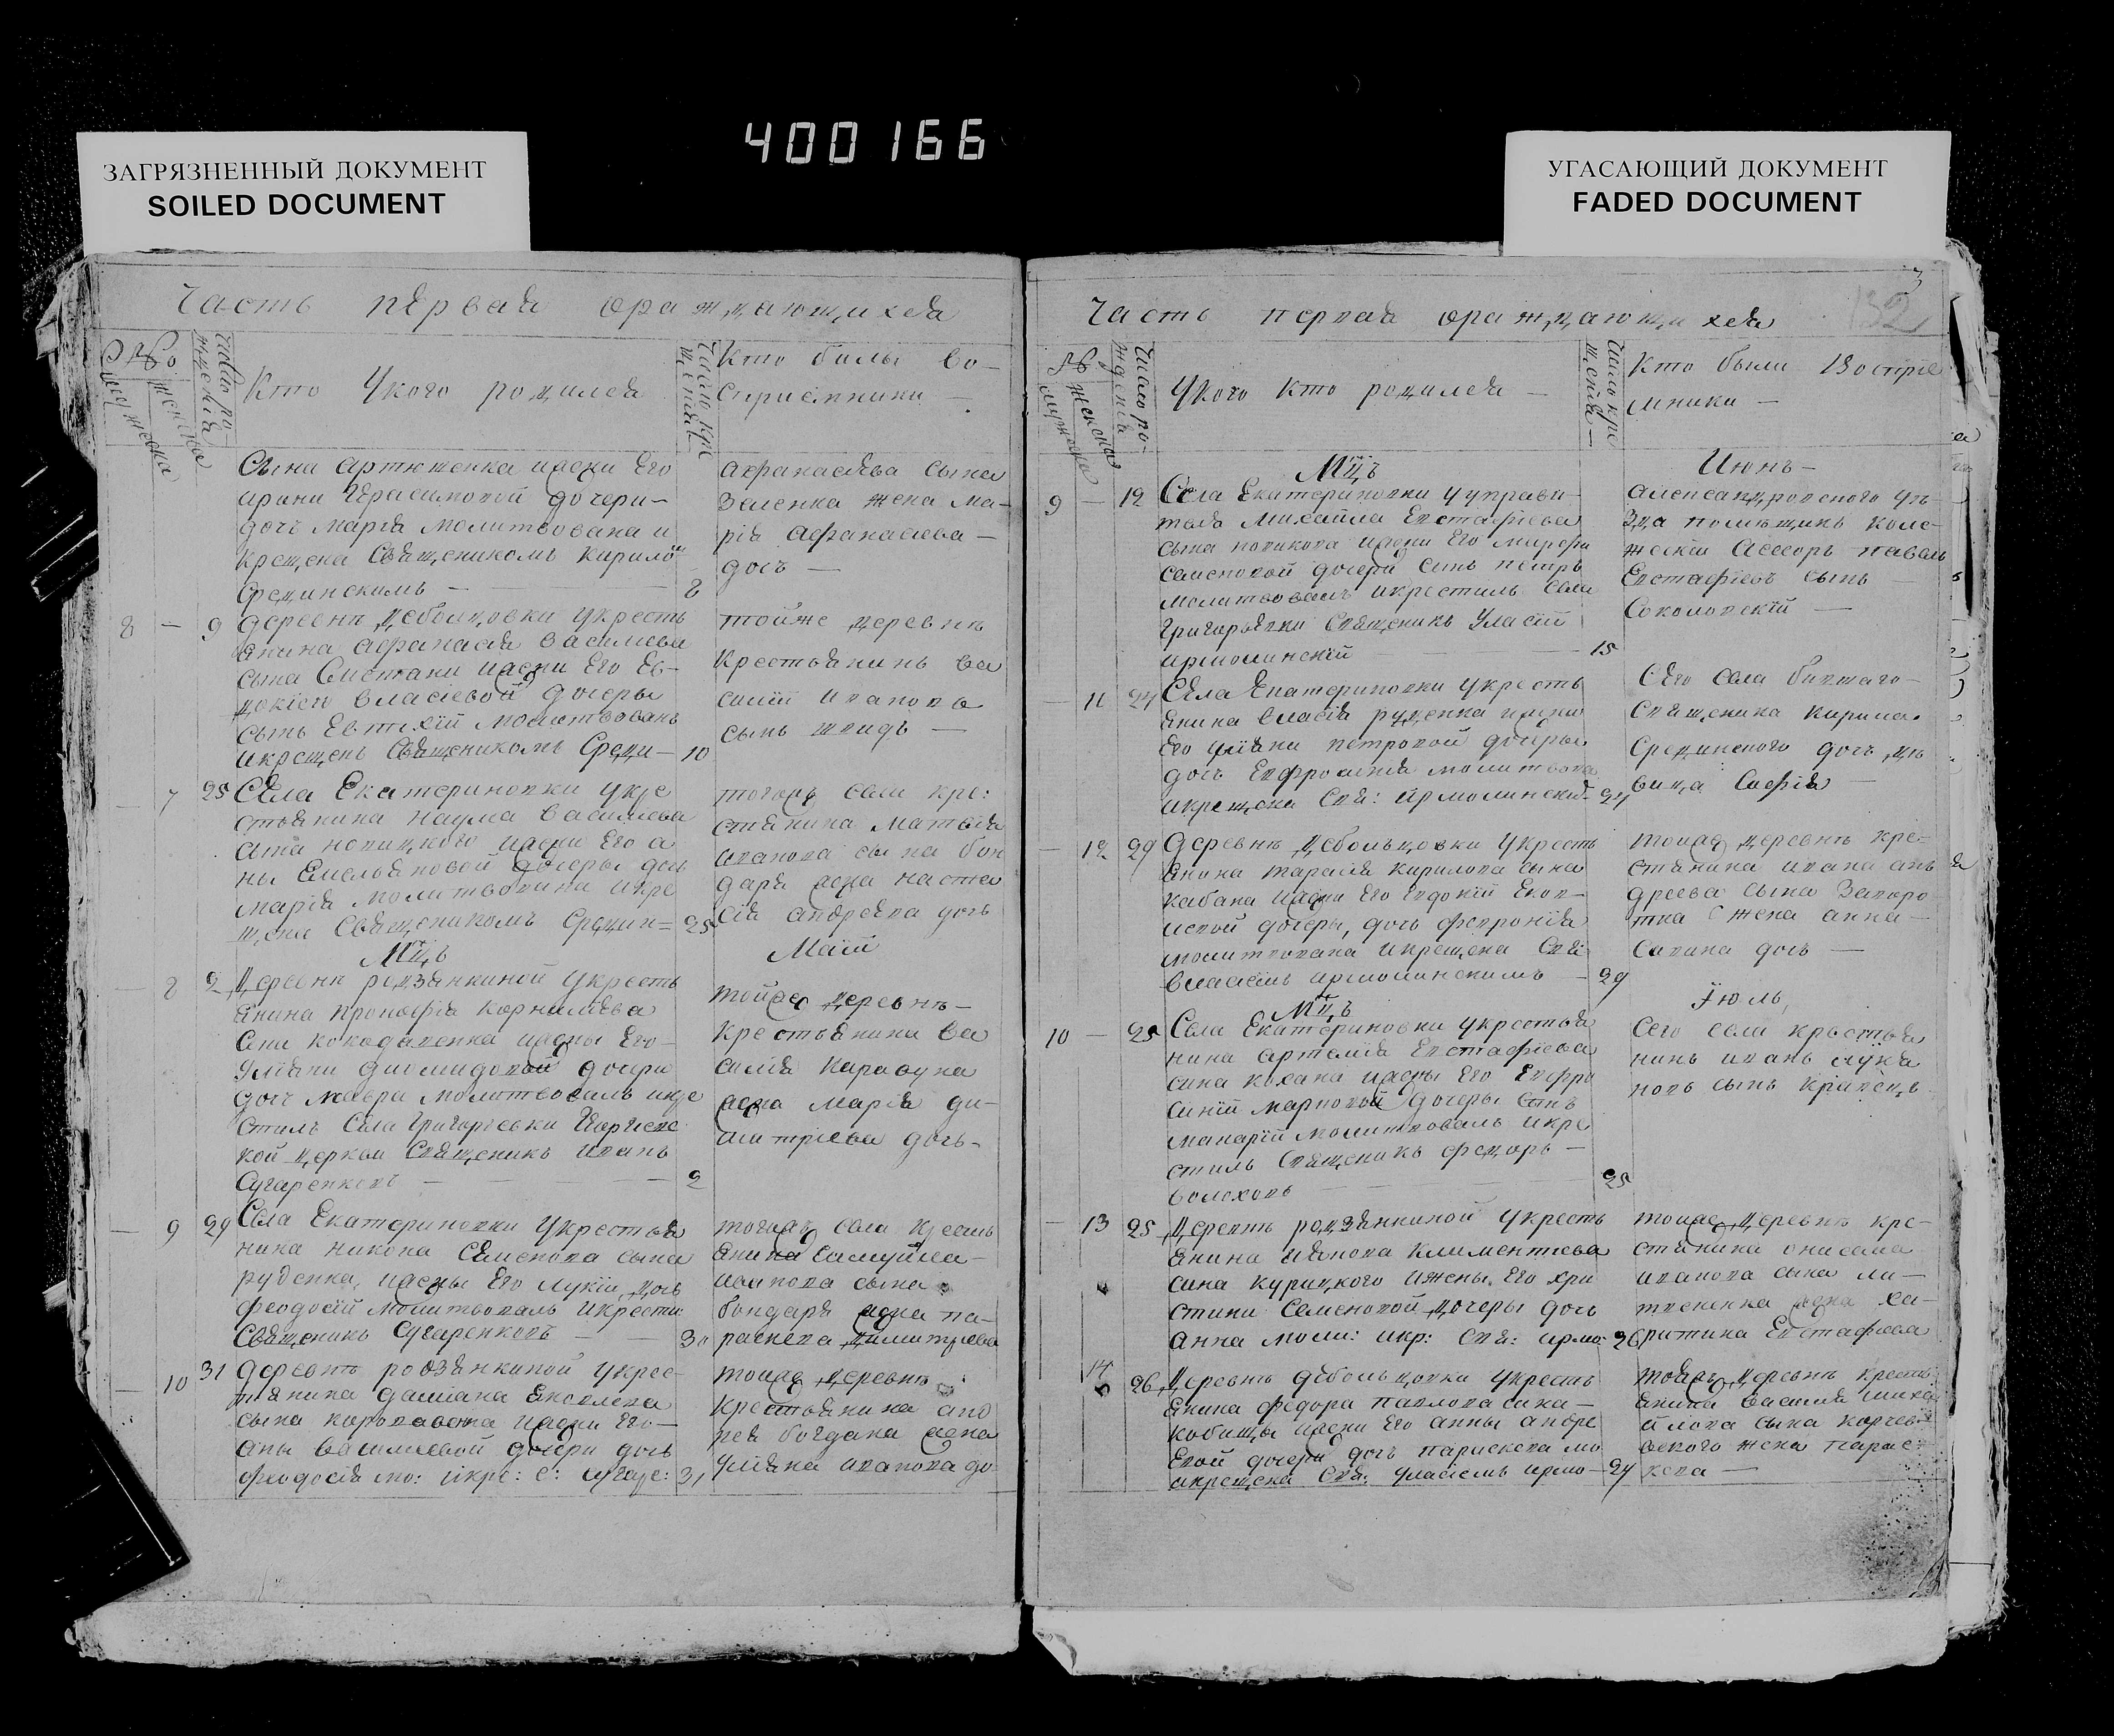 400166
ЗАГРЯЗНЕННЫЙ ДОКУМЕНТ
SOILED DOCUMENT
УГАСАЮЩИЙ ДОКУМЕНТ
FADED DOCUMENT
Часть первая ораждающихся
№
мужеска
женска
Число рождения
Кто Укого родился
Число кре
щения
Кто были Во-
сприемники —
Сына Артюшенка ижены Его
Ирины Герасимовой дочери —
дочь Мария Молитвована и
крещена Священикомъ Кирило
Срединскимъ — 2
Афанасиева Сына
Зеленка жена Ма-
рія Афанасиева —
дочь —
8 — 9 деревни дебольцовки Укресть
янина Афанасия Василиева
сына Сметани ижены Его Ев-
докіи Власиевой дочеры
сынъ Евтихій Молитвованъ
икрещенъ Священикомъ Среди — 10
тойже деревнѣ
Крестьянинъ Ва
силій Ивановъ
сынъ шпидъ —
— 7 25 Села Екатериновки Укре
стьянина Наума Василиева
Его а
ны Емеляновой дочеры дочь
Марія молитвована икре
щена Священикомъ Средин= 25
тогожъ села кре:
стянина Матвѣя
Иванова сына бон
даря жена Наста
сія Андреева дочь
Мцъ Маій
— 8 2 Деревнѣ родзянкиной Укресть
янина Прокофія Корнилиева
ижены Его —
Уліяни Диомидовой дочери
дочь Мавра Молитвовалъ икре
стилъ Села Григорьевки Георгиевс
кой церкви Священикъ Иванъ
Сугаренковъ — 2
тойже деревнѣ —
Крестьянина Ва
силія Каравуна
жена Марія Ди-
митріева дочь —
— 9 29 Села Екатериновки Укрестья
нина Никона Семенова сына
руденка, ижены Его Лукіи, дочь
Феодосій Молитвовалъ икрести
Священикъ Сугаренковъ — 30
тогожъ села Кресть
янина Самуйла —
Иванова сына
бондаря жена Па-
раскева Димитриева
— 10 31 деревнѣ родзянкиной Укрес-
тянина Даміана
сына ижены Его —
Аны Василиевой дочери дочь
Феодосія мо: икре: С: Сугаре: 31
тояже деревнѣ
Крестьянина Анд
рея богдана жена
Уліяна Иванова до
3
132
Часть первая ораждающихся
№
мужеска
женска
Число ро-
жденія
Укого Кто родился —
Число кре
щенія —
Кто были Востріе
мники —
Мцъ Июнь —
9 — 12 Села Екатериновки Ууправи-
теля Михайла Евстафіева
сына Новикова ижены Его
Семеновой дочери сынъ Петръ
молитвовалъ икрестилъ Села
Григорьевки Священикъ Уласій
Ярмолинскій — 15
Александровского уѣ-
зда помѣщикъ коле-
жскій Асессоръ Павелъ
Евстафіевъ сынъ
Соколовскій —
— 11 24 Села Екатериновки Укресть
янина Власія руденка ижены
Его Уліяни Петровой дочеры
дочь Евфросинія молитвована
икрещена Свя: Ярмолински — 24
Сего Села бившаго —
Священика Кирила
Срединского дочь дѣ
вица Софія —
— 12 29 Деревнѣ дебольцовки Укресть
янина Тарасія Кирилова сына
Кабана ижены Его Евдокій
дочеры, дочь Февронія
молитвована икрещена Свя:
Власіемъ Ярмолинскимъ — 29
тояже деревнѣ кре-
стянина Ивана Ан
дреева Сына Запоро
жена Анна —
Савина дочь —
Мцъ Іюль
10 — 25 Села Екатериновки Укрестья
нина Артемія Евстафіева
сина Кохана ижены Его Евфро
синій Марковой дочеры Синъ
Макарій молитвовалъ икре
стилъ Священикъ Федоръ —
Волоховъ — 25
Сего села крестья
нинъ Иванъ Лукя
новъ сынъ
— 13 25 Деревнѣ родзянкиной Укресть
янина Иякова Климентиева
сина Курицкого ижены Его Хри
стини Семеновой дочеры дочь
Анна моли: икр: Свя: Ярмо: 26
тояже деревнѣ кре-
стянина Онисима
Иванова сына ли-
жена Ха-
ритина Евстафиева
14 26 Деревнѣ дебольцовки Укресть
янина Федора Павлова сина —
Кобищы ижены Его Анны Андре
евой дочери дочь Парискева мо
икрещена Свя: Уласіемъ Ярмо — 27
тояже деревнѣ кресть
янина Василія Миха
йлова сына
жена Парас:
кева —